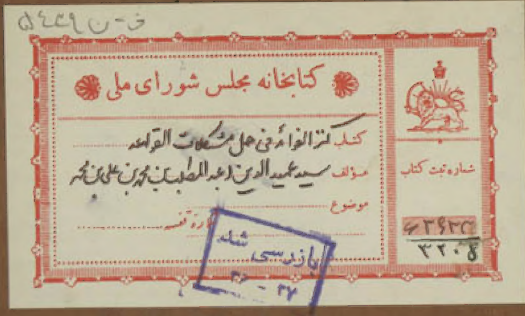 ف - ن ۵۴۳۹
کتابخانه مجلس شورای ملی
کتاب کنز الفوائد فی حل مشکلات القواعد
مؤلف سید عمید الدین عبد المطلب بن محمد بن علی بن محمد
موضوع
شماره قفسه
شماره ثبت کتاب
۳۲۰۸
بازرسی شد
۳۶ - ۳۷